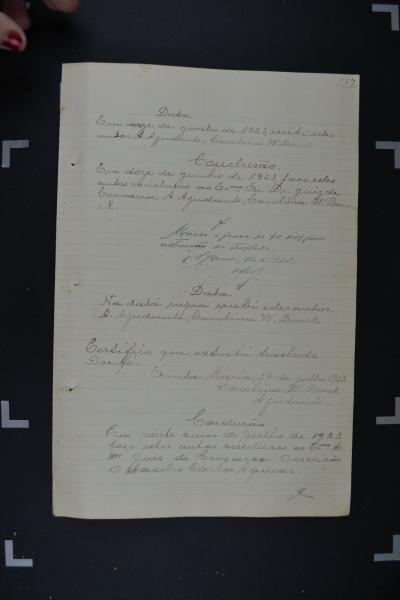 137
Data
Em doze de junho de 1923 recebi estes
autos. A Ajudante, Carolina W. Druck
Conclusão
Em doze de junho de 1923, faço estes
autos conclusos ao Exmo Sr. Dr. Juiz de
Comarca. A Ajudante, Carolina W. Druck
Marco o prazo de 90 dias para
Data
Na data supra recebi estes autos.
A Ajudante, Carolina W. Druck
Certifico que extrahi traslado
Dou fé.
Santa Maria, 24 de julho 1923
Carolina W. Druck
Ajudante
Conclusão
Em vinte de Julho de 1923
faço estes autos conclusos ao Exmo
Dr. Juiz de Comarca. O escrivão
Carlos Aguiar